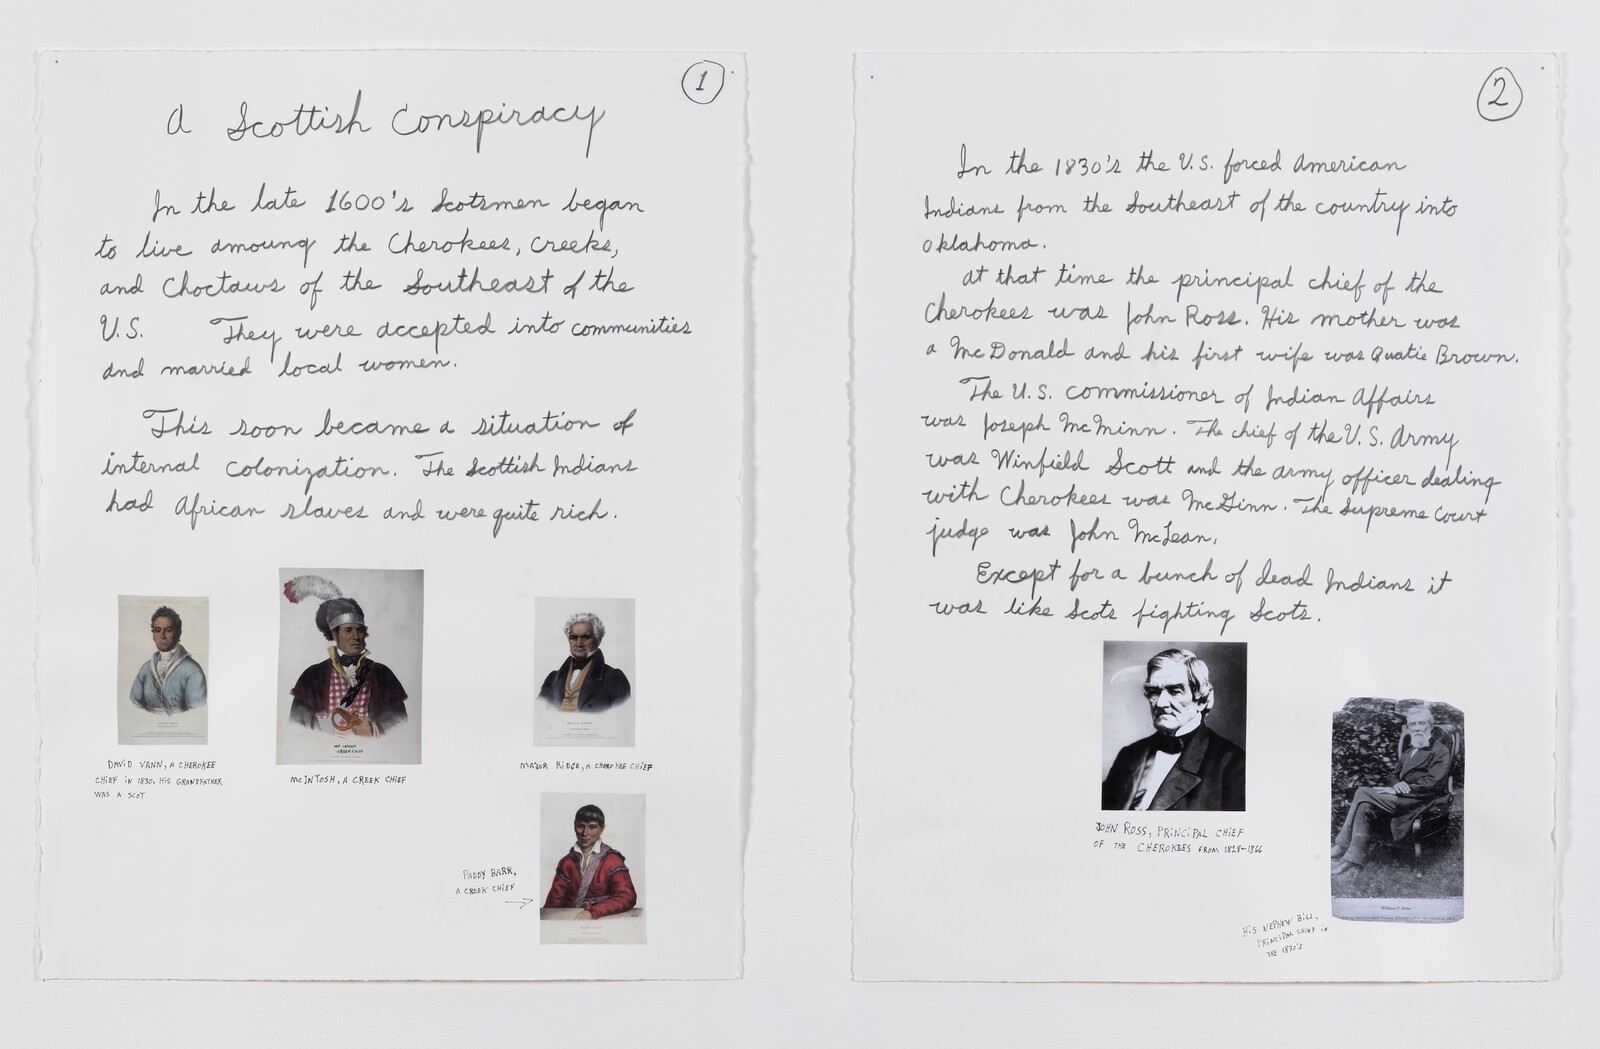 1
A Scottish Conspiracy
In the late 1600's Scotsmen began
to live amoung the Cherokees, Creeks,
and Choctaws of the Southeast of the
U.S. They were accepted into communities
and married local women.
This soon became a situation of
internal colonization. The Scottish Indians
had African slaves and were quite rich.
DAVID VANN, A CHEROKEE
CHIEF IN 1830. HIS GRANDFATHER
WAS A SCOT
McINTOSH, A CREEK CHIEF
MAJOR RIDGE, A CHEROKEE CHIEF
PADDY BARR,
A CREEK CHIEF
2
In the 1830's the U.S. forced American
Indians from the Southeast of the country into
Oklahoma.
At that time the principal chief of the
Cherokees was John Ross. His mother was
a McDonald and his first wife was Quatie Brown.
The U.S. Commissioner of Indian Affairs
was Joseph McMinn. The chief of the U.S. Army
was Winfield Scott and the army officer dealing
with Cherokees was McGinn. The Supreme Court
judge was John McLean.
Except for a bunch of dead Indians it
was like Scots fighting Scots.
JOHN ROSS, PRINCIPAL CHIEF
OF THE CHEROKEES FROM 1828-1866
William P. Ross
HIS NEPHEW BILL,
PRINCIPAL CHIEF IN
THE 1870'S